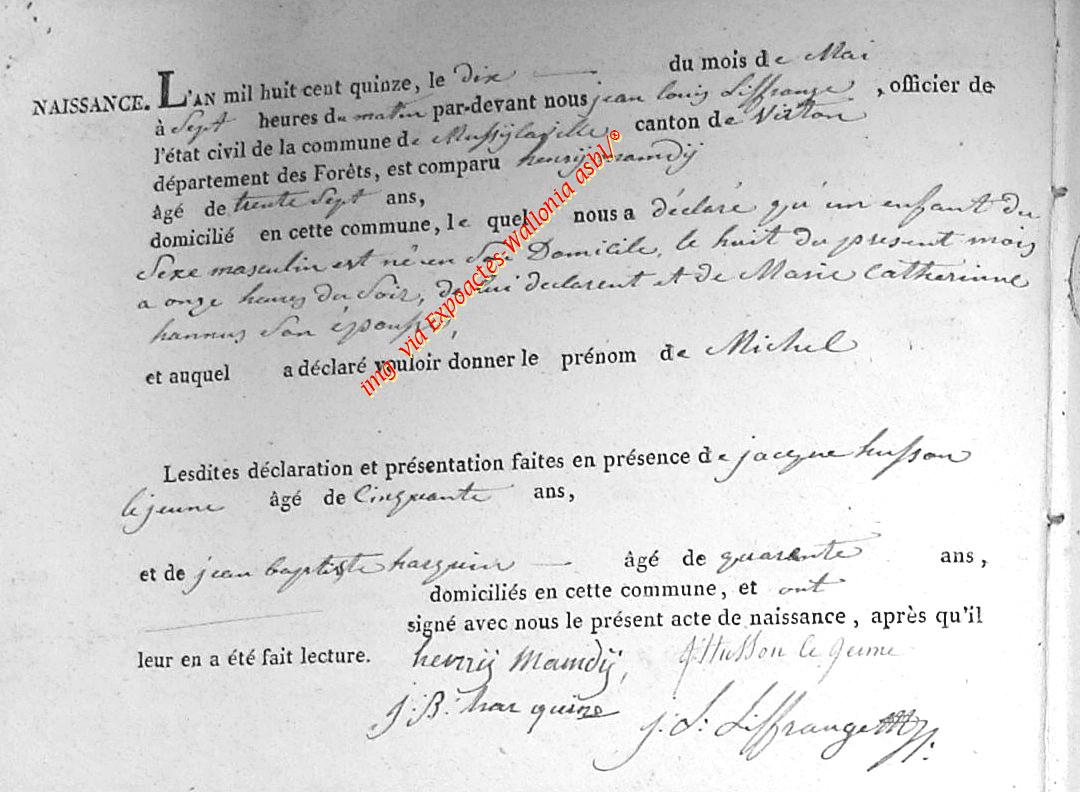 NAISSANCE. L'AN mil huit cent quinze, le dix du mois de Mai
à Sept heures du matin par-devant nous jean louis Liffrange, officier de
l'état civil de la commune de Mussy la ville canton de Virton
département des Forêts, est comparu henrij mamdij
âgé de trente Sept ans,
domicilié en cette commune, le quel nous a déclaré qu'un enfant du
Sexe masculin est né en Son Domicile, le huit du present mois
a onze heures du Soir, de lui declarent et de Marie Catherinne
hannus Son épouse,
et auquel a déclaré vouloir donner le prénom de Michel
Lesdites déclaration et présentation faites en présence de jacque husson
le jeune âgé de Cinquante ans,
et de jean baptiste harquin âgé de quarente ans,
domiciliés en cette commune, et ont
signé avec nous le présent acte de naissance, après qu'il
leur en a été fait lecture. henrij Mamdij, J Husson le jeune
J. B. harquine J. L. Liffrange
img via Expoactes-Wallonia asbl/©